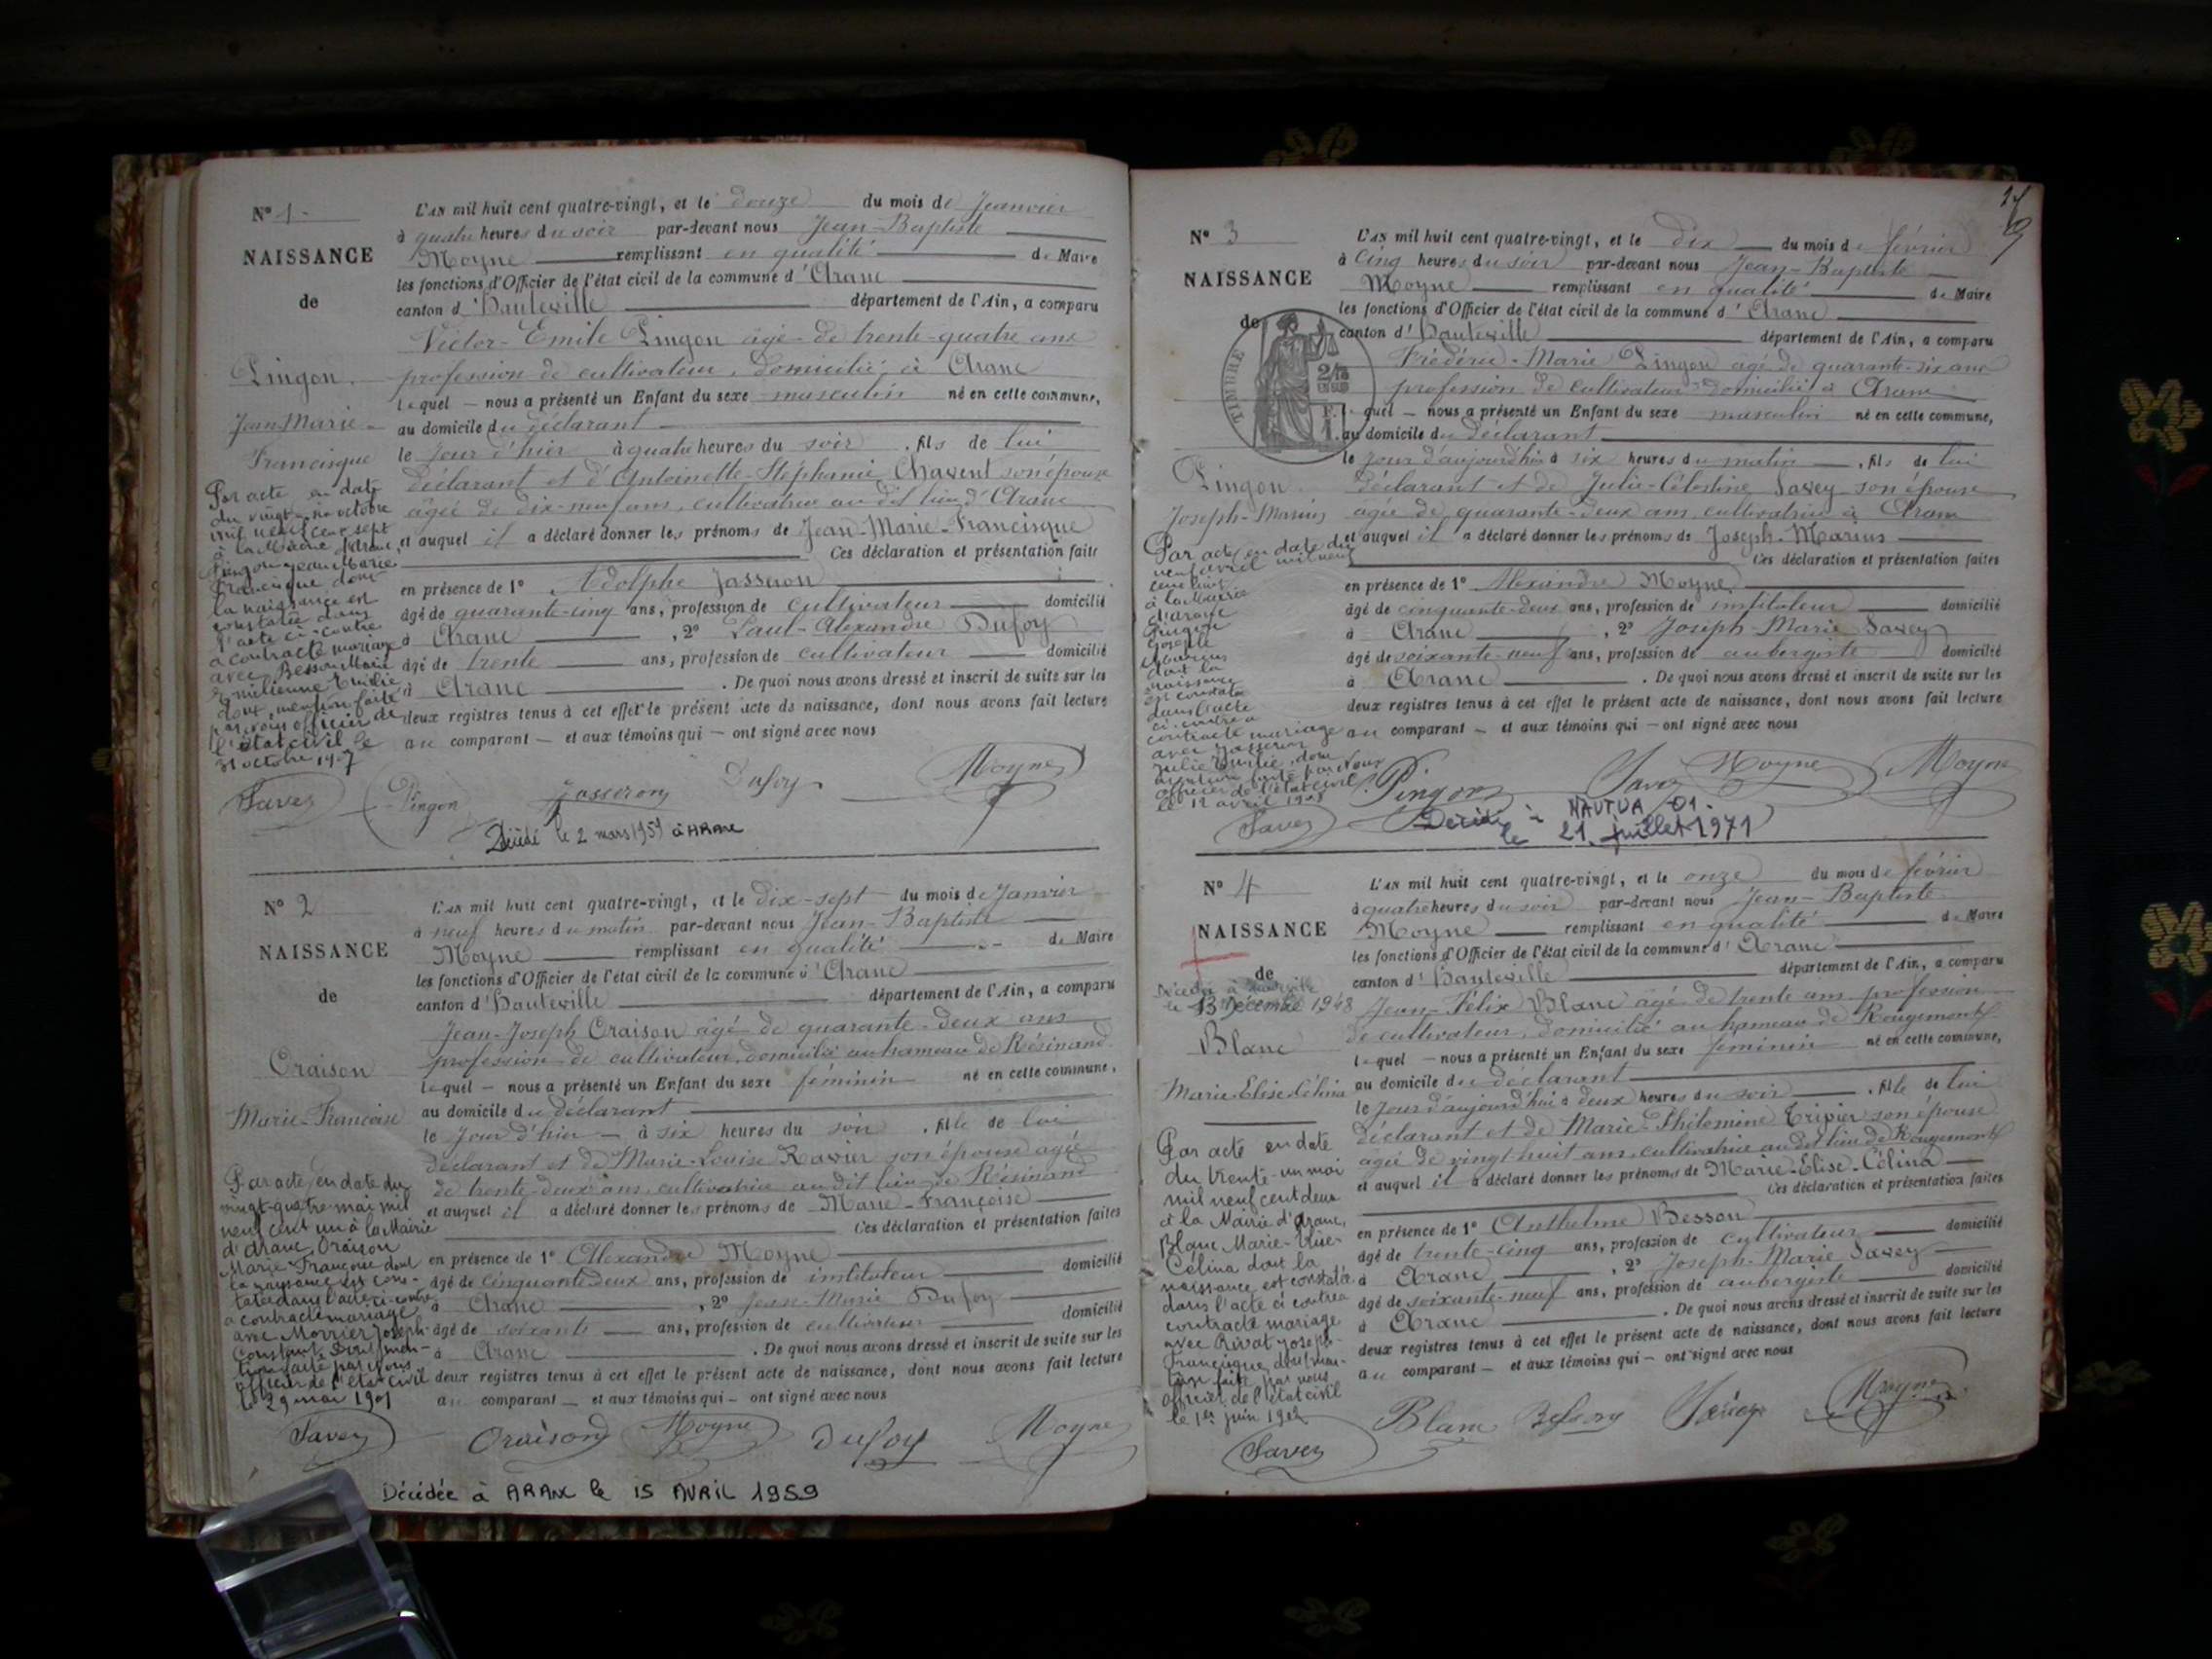 Nº 1
L'AN mil huit cent quatre-vingt, et le douze du mois de Janvier
à quatre heures du soir par-devant nous Jean-Baptiste
NAISSANCE
Moyne remplissant en qualité de Maire
les fonctions d'Officier de l'état civil de la commune d'Aranc
de
canton d'Hauteville département de l'Ain, a comparu
Victor-Emile Pingon âgé de trente-quatre ans
Pingon
profession de cultivateur, domicilié à Aranc
lequel — nous a présenté un Enfant du sexe masculin né en cette commune,
Jean-Marie-
au domicile du déclarant
Francisque
le jour d'hier à quatre heures du soir, fils de lui
déclarant et d'Antoinette-Stephanie Chavent son épouse
âgée de dix-neuf ans, cultivatrice au dit lieu d'Aranc
et auquel il a déclaré donner les prénoms de Jean-Marie-Francisque
Ces déclaration et présentation faites
en présence de 1º Adolphe Jasseron
âgé de quarante-cinq ans, profession de cultivateur domicilié
à Aranc, 2º Paul-Alexandre Dufoy
âgé de trente ans, profession de cultivateur domicilié
à Aranc. De quoi nous avons dressé et inscrit de suite sur les
deux registres tenus à cet effet le présent acte de naissance, dont nous avons fait lecture
au comparant — et aux témoins qui — ont signé avec nous
Par acte en date
du vingt- octobre
mil neuf cent sept
à la Mairie d'Aranc,
Pingon Jean Marie
Francisque dont
la naissance est
constatée dans
l'acte ci-contre
a contracté mariage
avec Besson Marie
Emilienne Emilie
dont mention faite
par nous officier de
l'état civil le
31 octobre 1907
Savey Pingon Jasseron Dufoy Moyne
Décédé le 2 mars 1959 à ARANC
Nº 2
L'AN mil huit cent quatre-vingt, et le dix-sept du mois de Janvier
à neuf heures du matin par-devant nous Jean-Baptiste
NAISSANCE
Moyne remplissant en qualité de Maire
les fonctions d'Officier de l'état civil de la commune d'Aranc
de
canton d'Hauteville département de l'Ain, a comparu
Jean-Joseph Oraison âgé de quarante-deux ans
Oraison
profession de cultivateur, domicilié au hameau de Résinand
lequel — nous a présenté un Enfant du sexe féminin né en cette commune,
Marie-Françoise
au domicile du déclarant
le jour d'hier — à six heures du soir, fille de lui
déclarant et de Marie-Louise Ravier son épouse âgée
de trente-deux ans, cultivatrice au dit lieu de Résinand
et auquel il a déclaré donner les prénoms de Marie-Françoise
Ces déclaration et présentation faites
en présence de 1º Alexandre Moyne
âgé de cinquante-deux ans, profession de instituteur domicilié
à Aranc, 2º Jean-Marie Dufoy
âgé de soixante ans, profession de cultivateur domicilié
à Aranc. De quoi nous avons dressé et inscrit de suite sur les
deux registres tenus à cet effet le présent acte de naissance, dont nous avons fait lecture
au comparant — et aux témoins qui — ont signé avec nous
Par acte en date du
vingt-quatre mai mil
neuf cent un à la Mairie
d'Aranc, Oraison
Marie-Françoise dont
la naissance est cons-
tatée dans l'acte ci-contre
a contracté mariage
avec Morrier Joseph-
Constant, dont men-
tion faite par nous
officier de l'état civil
le 29 mai 1901
Savey Oraison Moyne Dufoy Moyne
Décédée à ARANC le 15 AVRIL 1959
Nº 3
L'AN mil huit cent quatre-vingt, et le dix du mois de février
à cinq heures du soir par-devant nous Jean-Baptiste
NAISSANCE
Moyne remplissant en qualité de Maire
les fonctions d'Officier de l'état civil de la commune d'Aranc
de
canton d'Hauteville département de l'Ain, a comparu
TIMBRE
Frédéric-Marie Pingon âgé de quarante-six ans
profession de cultivateur domicilié à Aranc
lequel — nous a présenté un Enfant du sexe masculin né en cette commune,
au domicile du déclarant
le jour d'aujourd'hui à six heures du matin, fils de lui
Pingon
déclarant et de Julie-Célestine Savey son épouse
Joseph-Marius
âgée de quarante-deux ans, cultivatrice à Aranc
et auquel il a déclaré donner les prénoms de Joseph-Marius
Ces déclaration et présentation faites
en présence de 1º Alexandre Moyne
âgé de cinquante-deux ans, profession de instituteur domicilié
à Aranc, 2º Joseph-Marie Savey
âgé de soixante-neuf ans, profession de aubergiste domicilié
à Aranc. De quoi nous avons dressé et inscrit de suite sur les
deux registres tenus à cet effet le présent acte de naissance, dont nous avons fait lecture
au comparant — et aux témoins qui — ont signé avec nous
Par acte en date du
neuf avril mil neuf
cent
à la Mairie
d'Aranc
Pingon
Joseph
Marius
dont la
naissance
est constatée
dans l'acte
ci-contre a
contracté mariage
avec Jasseron
Julie Emilie, dont
mention faite par nous
officier de l'état civil
le 12 avril
Savey Pingon Savey Moyne Moyne
Décédé à NANTUA -01-
le 21 juillet 1971
Nº 4
L'AN mil huit cent quatre-vingt, et le onze du mois de février
à quatre heures du soir par-devant nous Jean-Baptiste
NAISSANCE
Moyne remplissant en qualité de Maire
les fonctions d'Officier de l'état civil de la commune d'Aranc
de
canton d'Hauteville département de l'Ain, a comparu
Décédée à
le 13 Décembre 1948
Jean-Félix Blanc âgé de trente ans profession
Blanc
de cultivateur, domicilié au hameau de Rougemont
lequel — nous a présenté un Enfant du sexe féminin né en cette commune,
Marie-Elise-Célina
au domicile du déclarant
le jour d'aujourd'hui à deux heures du soir, fille de lui
déclarant et de Marie-Philomine Trivier son épouse
âgée de vingt-huit ans, cultivatrice au dit lieu de Rougemont
et auquel il a déclaré donner les prénoms de Marie-Elise-Célina
Ces déclaration et présentation faites
en présence de 1º Anthelme Besson
âgé de trente-cinq ans, profession de cultivateur domicilié
à Aranc, 2º Joseph-Marie Savey
âgé de soixante-neuf ans, profession de aubergiste domicilié
à Aranc. De quoi nous avons dressé et inscrit de suite sur les
deux registres tenus à cet effet le présent acte de naissance, dont nous avons fait lecture
au comparant — et aux témoins qui — ont signé avec nous
Par acte en date
du trente-un mai
mil neuf cent deux
à la Mairie d'Aranc,
Blanc Marie-Elise-
Célina dont la
naissance est constatée
dans l'acte ci contre a
contracté mariage
avec Rivat Joseph-
Francisque dont men-
tion faite par nous
officier de l'état civil
le 1er juin 1902
Savey Blanc Besson Savey Moyne